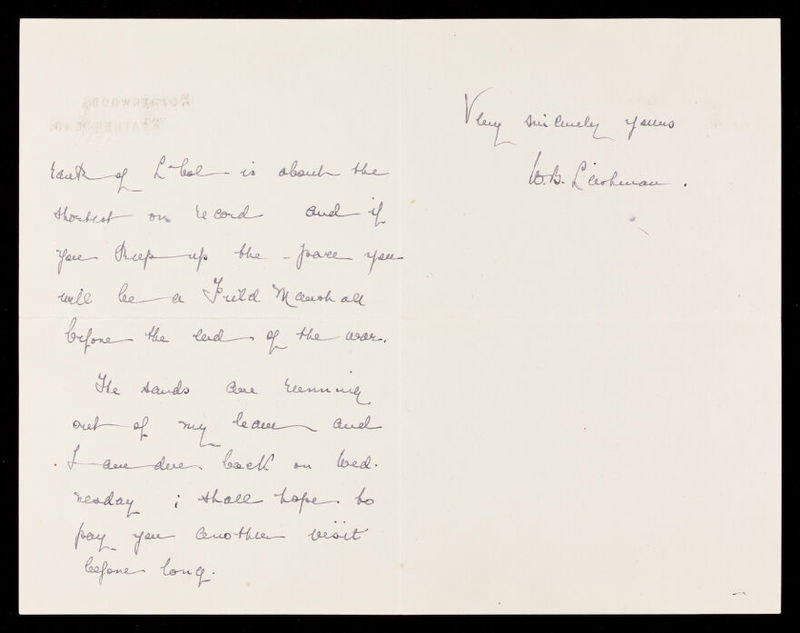 rank of Lt Col is about the
shortest on record and if
you keep up the pace you
will be a Field Marshall
before the end of the war.
The sands are running
out of my leave and
I am due back on Wed-
nesday; shall hope to
pay you another visit
before long.
Very sincerely yours
W.B. Leishman.